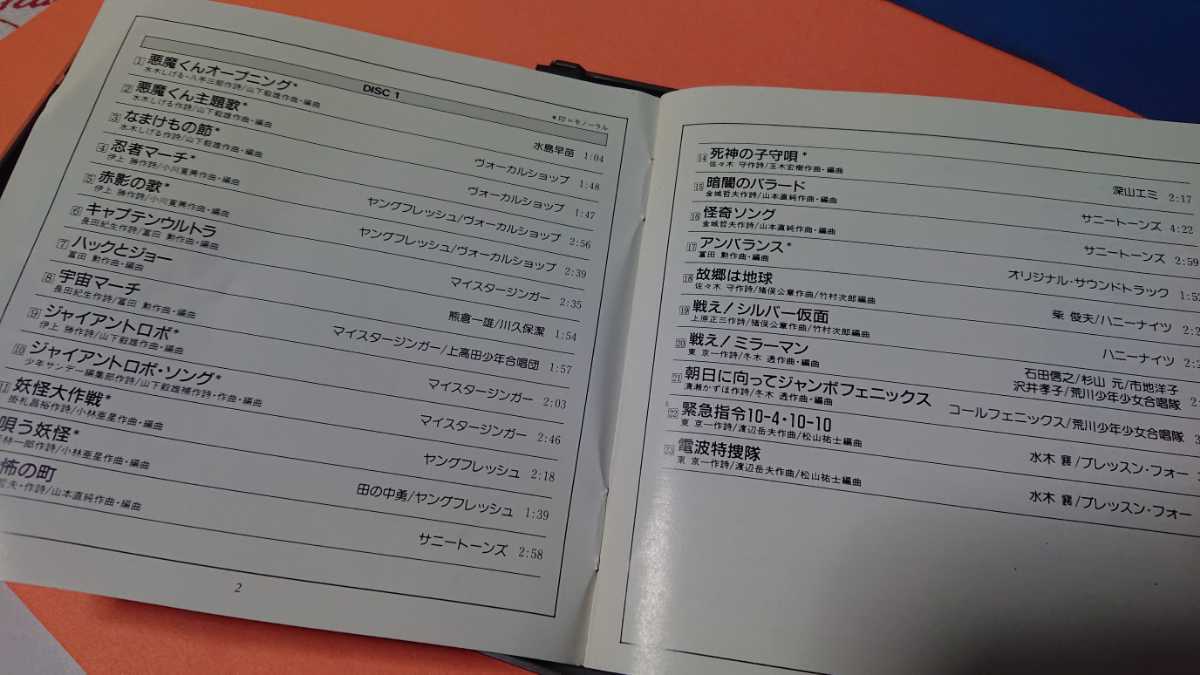 DISC 1
*印=モノーラル
1 悪魔くんオープニング*
水木しげる・八手三郎作詩/山下毅雄作曲・編曲
水島早苗 1:04
2 悪魔くん主題歌*
水木しげる作詩/山下毅雄作曲・編曲
ヴォーカルショップ 1:48
3 なまけもの節*
水木しげる作詩/山下毅雄作曲・編曲
ヴォーカルショップ 1:47
4 忍者マーチ*
伊上 勝作詩/小川寛興作曲・編曲
ヤングフレッシュ/ヴォーカルショップ 2:56
5 赤影の歌*
伊上 勝作詩/小川寛興作曲・編曲
ヤングフレッシュ/ヴォーカルショップ 2:39
6 キャプテンウルトラ
長田紀生作詩/冨田 勲作曲・編曲
マイスタージンガー 2:35
7 ハックとジョー
冨田 勲作曲・編曲
熊倉一雄/川久保潔 1:54
8 宇宙マーチ
長田紀生作詩/冨田 勲作曲・編曲
マイスタージンガー/上高田少年合唱団 1:57
9 ジャイアントロボ*
伊上 勝作詩/山下毅雄作曲・編曲
マイスタージンガー 2:03
10 ジャイアントロボ・ソング*
少年サンデー編集部作詩/山下毅雄補作詩・作曲・編曲
マイスタージンガー 2:46
11 妖怪大作戦*
掛札昌裕作詩/小林亜星作曲・編曲
ヤングフレッシュ 2:18
唄う妖怪*
林一郎作詩/小林亜星作曲・編曲
田の中勇/ヤングフレッシュ 1:39
怖の町
哲夫・作詩/山本直純作曲・編曲
サニートーンズ 2:58
2
14 死神の子守唄*
佐々木 守作詩/玉木宏樹作曲・編曲
深山エミ 2:17
15 暗闇のバラード
金城哲夫作詩/山本直純作曲・編曲
サニートーンズ 4:22
16 怪奇ソング
金城哲夫作詩/山本直純作曲・編曲
サニートーンズ 2:59
17 アンバランス*
冨田 勲作曲・編曲
オリジナル・サウンドトラック 1:5
18 故郷は地球
佐々木 守作詩/猪俣公章作曲/竹村次郎編曲
柴 俊夫/ハニーナイツ 2:2
19 戦え!シルバー仮面
上原正三作詩/猪俣公章作曲/竹村次郎編曲
ハニーナイツ 2:2
20 戦え!ミラーマン
東 京一作詩/冬木 透作曲・編曲
石田信之/杉山 元/市地洋子
沢井孝子/荒川少年少女合唱隊 2:
21 朝日に向ってジャンボフェニックス
満瀬かずほ作詩/冬木 透作曲・編曲
コールフェニックス/荒川少年少女合唱隊 3
22 緊急指令10-4・10-10
東 京一作詩/渡辺岳夫作曲/松山祐士編曲
水木 襄/ブレッスン・フォー
23 電波特捜隊
東 京一作詩/渡辺岳夫作曲/松山祐士編曲
水木 襄/ブレッスン・フォー